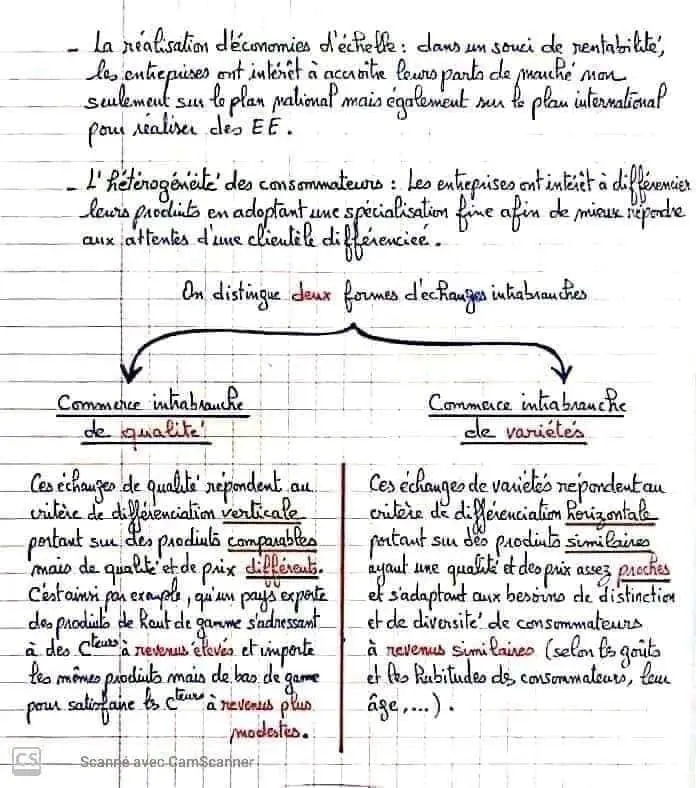 - La réalisation d'économies d'échelle : dans un souci de rentabilité,
les entreprises ont intérêt à accroître leurs parts de marché non
seulement sur le plan national mais également sur le plan international
pour réaliser des EE.
- L'hétérogénéité des consommateurs : Les entreprises ont intérêt à différencier
leurs produits en adoptant une spécialisation fine afin de mieux répondre
aux attentes d'une clientèle différenciée.
On distingue deux formes d'échanges intrabranches
Commerce intrabranche
de qualité
Ces échanges de qualité répondent au
critère de différenciation verticale
portant sur des produits comparables
mais de qualité et de prix différents.
C'est ainsi par exemple, qu'un pays exporte
des produits de haut de gamme s'adressant
à des Cteurs à revenus élevés et importe
les mêmes produits mais de bas de game
pour satisfaire ls Cteurs à revenus plus
modestes.
Commerce intrabranche
de variétés
Ces échanges de variétés répondent au
critère de différenciation horizontale
portant sur des produits similaires
ayant une qualité et des prix assez proches
et s'adaptant aux besoins de distinction
et de diversité de consommateurs
à revenus similaires (selon ls goûts
et les habitudes ds consommateurs, leur
âge, ...).
CS Scanné avec CamScanner